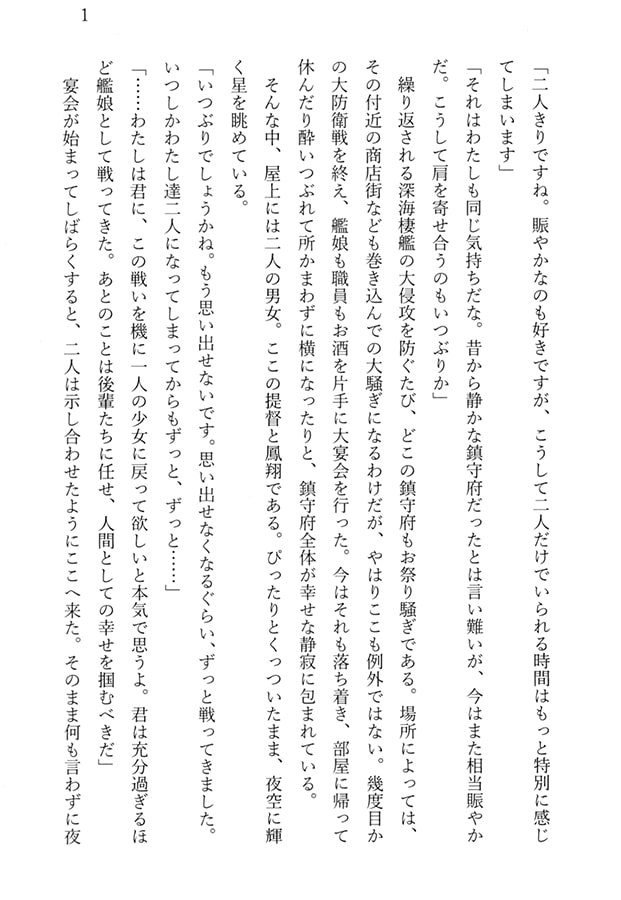 1
「二人きりですね。賑やかなのも好きですが、こうして二人だけでいられる時間はもっと特別に感じ
てしまいます」
「それはわたしも同じ気持ちだな。昔から静かな鎮守府だったとは言い難いが、今はまた相当賑やか
だ。こうして肩を寄せ合うのもいつぶりか」
繰り返される深海棲艦の大侵攻を防ぐたび、どこの鎮守府もお祭り騒ぎである。場所によっては、
その付近の商店街なども巻き込んでの大騒ぎになるわけだが、やはりここも例外ではない。幾度目か
の大防衛戦を終え、艦娘も職員もお酒を片手に大宴会を行った。今はそれも落ち着き、部屋に帰って
休んだり酔いつぶれて所かまわずに横になったりと、鎮守府全体が幸せな静寂に包まれている。
そんな中、屋上には二人の男女。ここの提督と鳳翔である。ぴったりとくっついたまま、夜空に輝
く星を眺めている。
「いつぶりでしょうかね。もう思い出せないです。思い出せなくなるぐらい、ずっと戦ってきました。
いつしかわたし達二人になってしまってからもずっと、ずっと……」
「……わたしは君に、この戦いを機に一人の少女に戻って欲しいと本気で思うよ。君は充分過ぎるほ
ど艦娘として戦ってきた。あとのことは後輩たちに任せ、人間としての幸せを掴むべきだ」
宴会が始まってしばらくすると、二人は示し合わせたようにここへ来た。そのまま何も言わずに夜